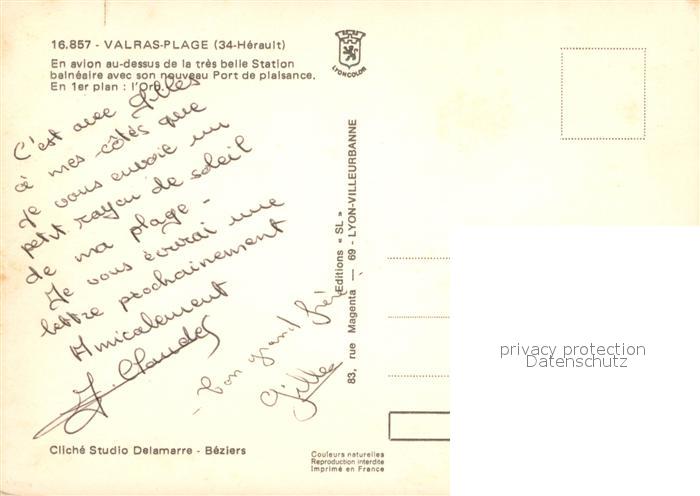 16.857 - VALRAS-PLAGE (34-Hérault)
En avion au-dessus de la très belle Station
balnéaire avec son nouveau Port de plaisance.
En 1er plan : l'Orb.
LYONCOLOR
C'est avec Gilles
à mes côtés que
je vous envoie un
petit rayon de soleil
de ma plage -
Je vous écrirai une
lettre prochainement
Amicalement
J. Claude
- Ton grand frère
Gilles
83, rue Magenta — 69 - LYON-VILLEURBANNE
Editions « SL »
privacy protection
Datenschutz
Cliché Studio Delamarre - Béziers
Couleurs naturelles
Reproduction interdite
Imprimé en France